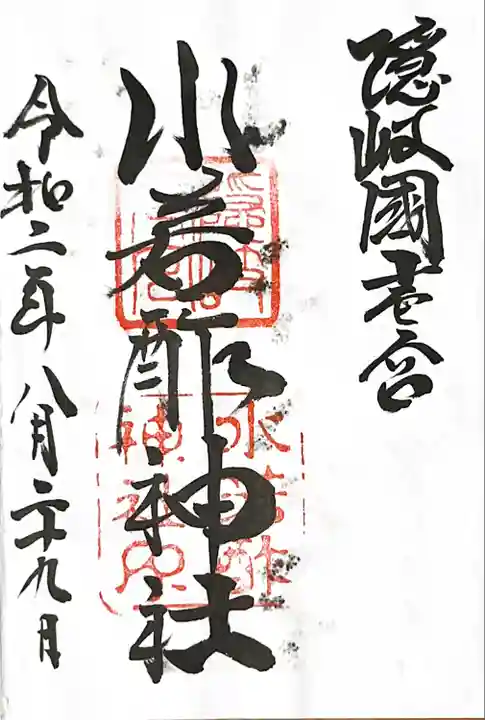 隠岐國壱宮
水若酢神社
水若酢
神社印
令和二年八月二十九日